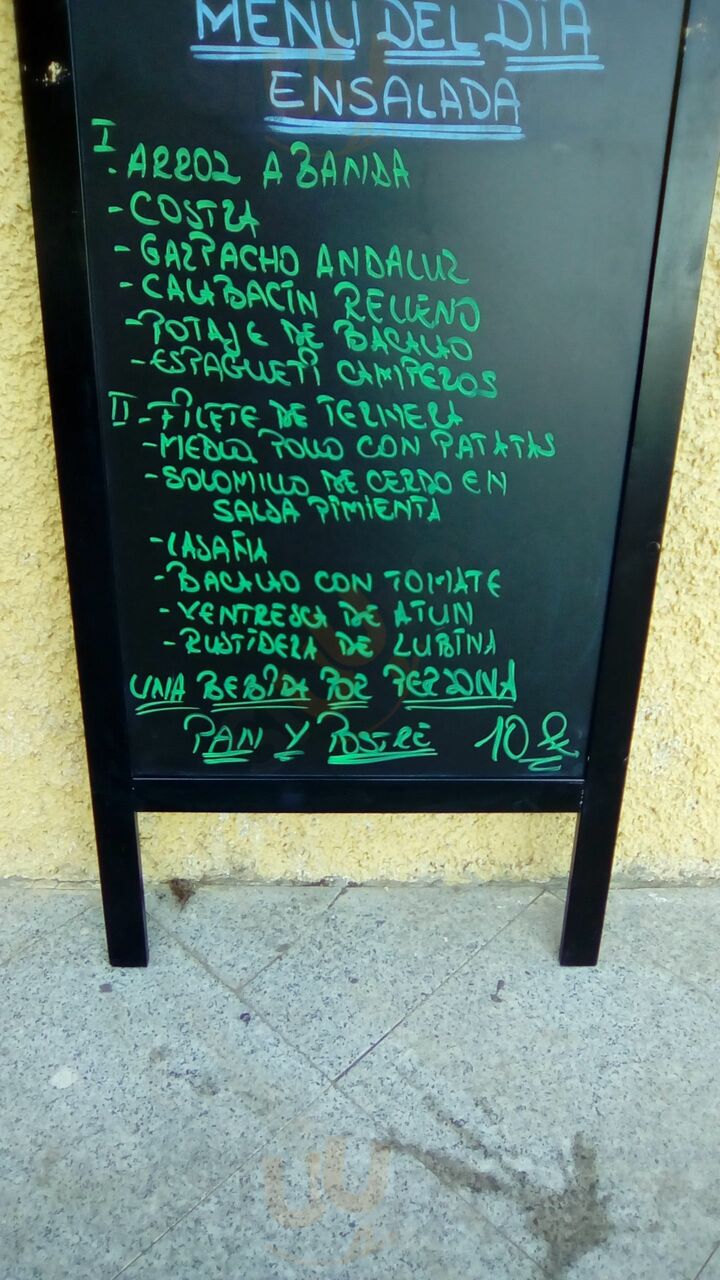 MENU DEL DIA
ENSALADA
I
- ARROZ A BANDA
- COSTRA
- GAZPACHO ANDALUZ
- CALABACIN RELLENO
- POTAJE DE BACALAO
- ESPAGUETI CAMPEROS
II - FILETE DE TERNERA
- MEDIO POLLO CON PATATAS
- SOLOMILLO DE CERDO EN
SALSA PIMIENTA
- LASAÑA
- BACALAO CON TOMATE
- VENTRESCA DE ATUN
- RUSTIDERA DE LUBINA
UNA BEBIDA POR PERSONA
PAN Y POSTRE 10 €